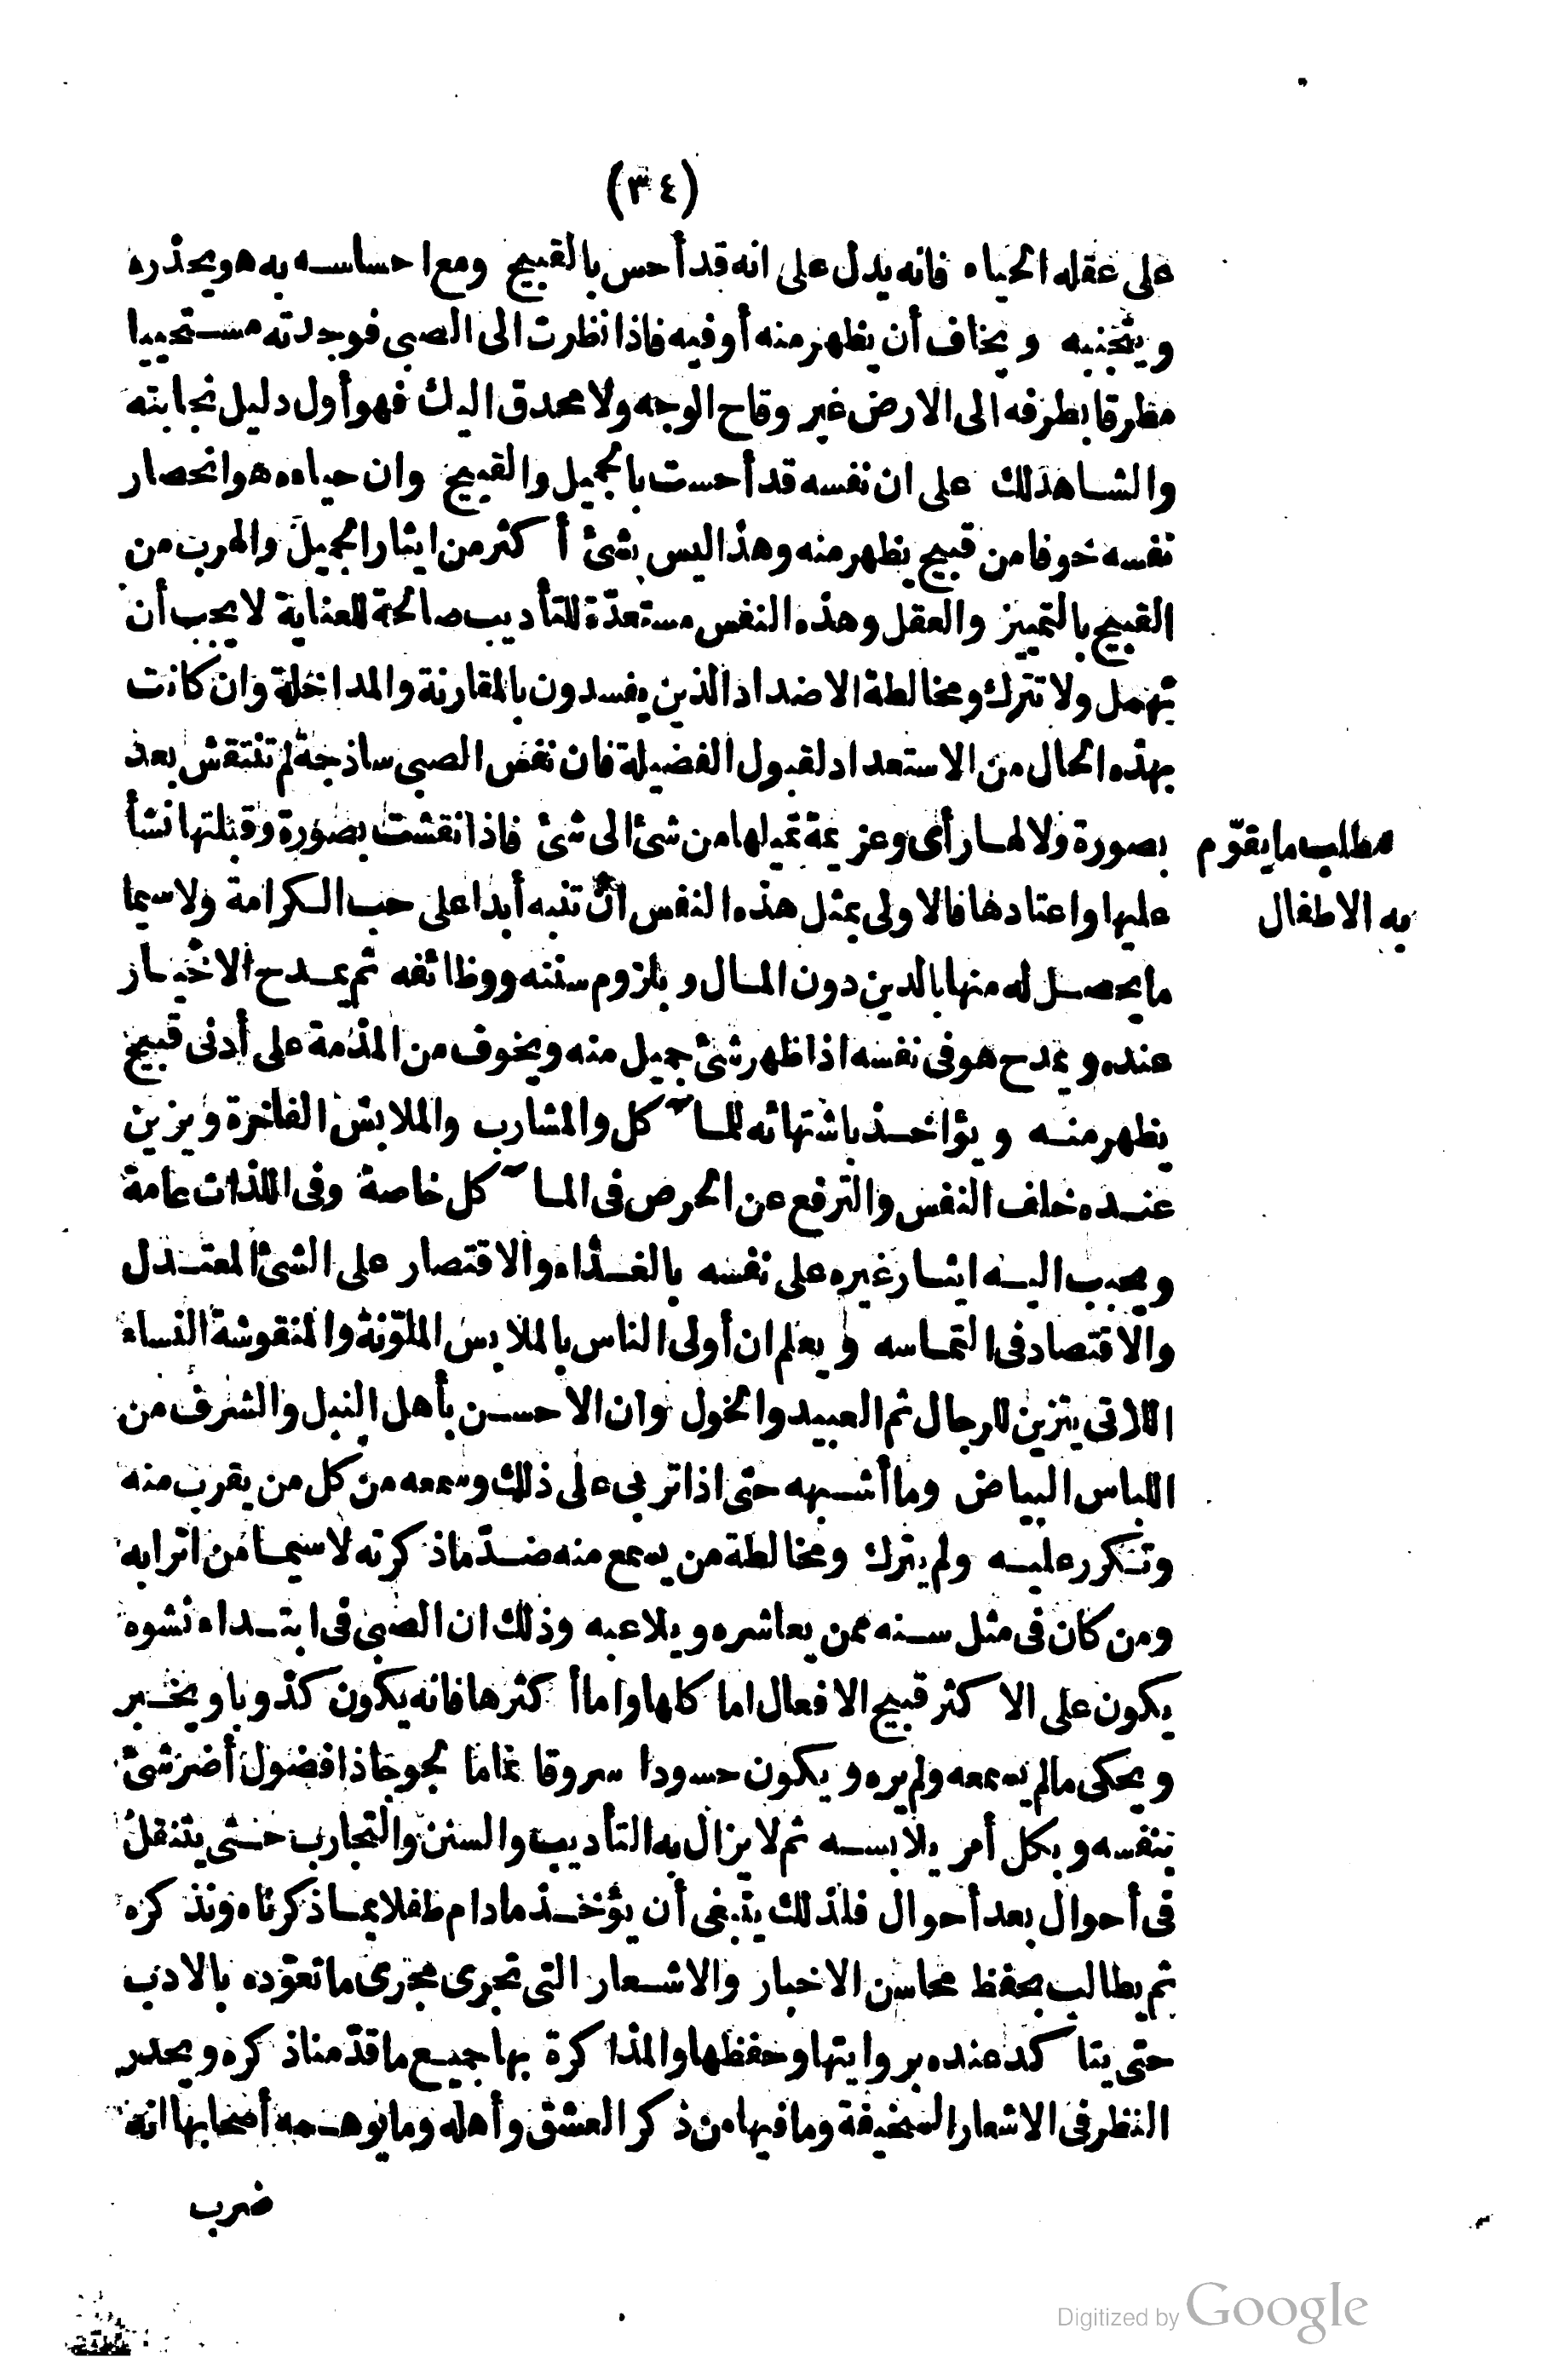 (٣٤)
على عقله الحياء فانه يدل على انه قد أحس بالقبيح ومع احساسه به هو يحذره
ويتجنبه ويخاف أن يظهر منه أو فيه فاذا نظرت الى الصبى فوجدته مستحييا
مطرقا بطرفه الى الارض غير وقاح الوجه ولا محدق اليك فهو أول دليل نجابته
والشاهد لك على ان نفسه قد أحست بالجميل والقبيح وان حياءه هو انحصار
نفسه خوفا من قبيح يظهر منه وهذا ليس بشئ أكثر من ايثار الجميل والهرب من
القبيح بالتمييز والعقل وهذه النفس مستعدّة للتأديب صالحة للعناية لا يجب أن
تهمل ولا تترك ومخالطة الاضداد الذين يفسدون بالمقارنة والمداخلة وان كانت
بهذه الحال من الاستعداد لقبول الفضيلة فان نفس الصبى ساذجة لم تنتقش بعد
بصورة ولا لها رأى وعزيمة تميلها من شئ الى شئ فاذا نقشت بصورة وقبلتها نشأ
مطلب ما يقوّم
به الاطفال
عليها واعتادها فالاولى بمثل هذه النفس ان تنبه أبدا على حب الكرامة ولا سيما
ما يحصل له منها بالدين دون المال وبلزوم سننه ووظائفه ثم يمدح الاخيار
عنده ويمدح هو فى نفسه اذا ظهر شئ جميل منه ويخوف من المذمة على أدنى قبيح
يظهر منه ويؤاخذ باشتهائه للمآكل والمشارب والملابس الفاخرة ويزين
عنده خلف النفس والترفع عن الحرص فى المآكل خاصة وفى اللذات عامة
ويحبب اليه ايثار غيره على نفسه بالغذاء والاقتصار على الشئ المعتدل
والاقتصاد فى التماسه ويعلم ان أولى الناس بالملابس الملوّنة والمنقوشة النساء
اللاتى يتزين للرجال ثم العبيد والخول وان الاحسن بأهل النبل والشرف من
اللباس البياض وما أشبهه حتى اذا تربى على ذلك وسمعه من كل من يقرب منه
وتكرر عليه ولم يترك ومخالطة من يسمع منه ضدّ ما ذكرته لا سيما من اترابه
ومن كان فى مثل سنه ممن يعاشره ويلاعبه وذلك ان الصبى فى ابتداء نشوه
يكون على الاكثر قبيح الافعال اما كلها واما أكثرها فانه يكون كذوبا ويخبر
ويحكى ما لم يسمعه ولم يره ويكون حسودا سروقا نماما لجوجا ذا فضول أضر شئ
بنفسه وبكل أمر يلابسه ثم لا يزال به التأديب والسنن والتجارب حتى يتنقل
فى أحوال بعد أحوال فلذلك ينبغى أن يؤخذ ما دام طفلا بما ذكرناه ونذكره
ثم يطالب بحفظ محاسن الاخبار والاشعار التى تجرى مجرى ما تعوّده بالادب
حتى يتاكد عنده بروايتها وحفظها والمذاكرة بها جميع ما قدّمنا ذكره ويحذر
النظر فى الاشعار السخيفة وما فيها من ذكر العشق وأهله وما يوهمه أصحابها انه
ضرب
Digitized by Google